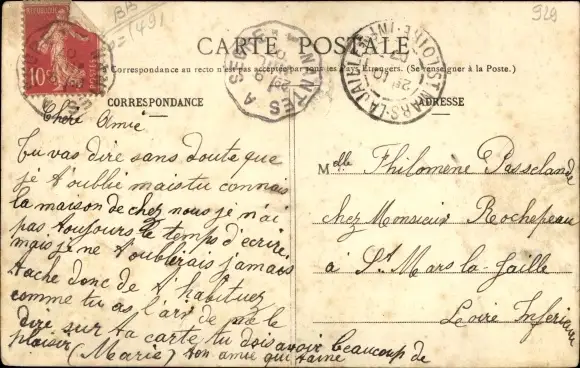 929
BB
1491
CARTE POSTALE
La Correspondance au recto n'est pas acceptée par tous les Pays Étrangers. (Se renseigner à la Poste.)
CORRESPONDANCE
Chère Amie
Tu vas dire sans doute que
je t'oublie mais tu connais
la maison de chez nous je n'ai
pas toujours le temps d'ecrire
mais je ne t'oublirais jamais
tache donc de t'habituez
comme tu as l'air de me le
dire sur ta carte tu dois avoir beaucoup de
plaisir (Marie) ton amie qui t'aime
ADRESSE
Melle Philomene Passelande
chez Monsieur Rochepeau
à St Mars la Jaille
Loire Inferieure
10
NANTES A
ST MARS-LA-JAILLE
LOIRE-INFRE